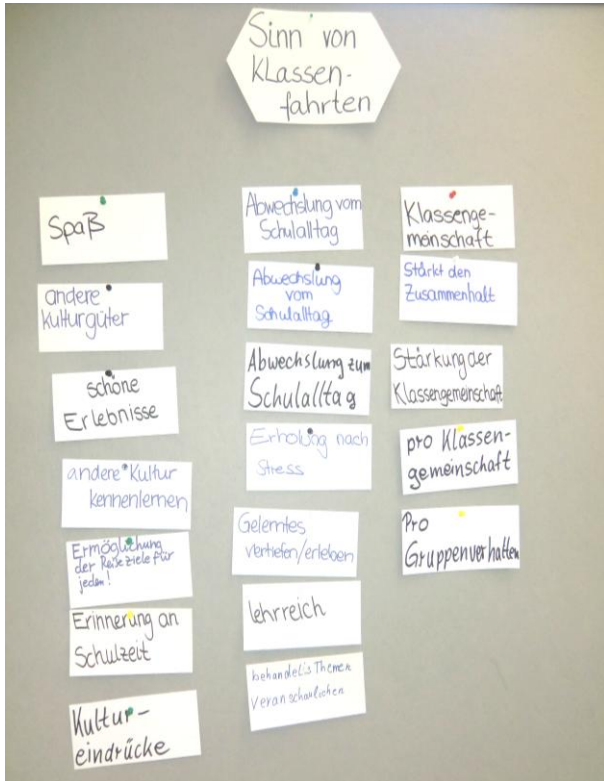 Sinn von
Klassen-
fahrten
Spaß
andere
Kulturgüter
schöne
Erlebnisse
andere Kultur
kennenlernen
Ermöglichung
der Reiseziele für
jeden!
Erinnerung an
Schulzeit
Kultur-
eindrücke
Abwechslung vom
Schulalltag
Abwechslung
vom
Schulalltag
Abwechslung zum
Schulalltag
Erholung nach
Stress
Gelerntes
vertiefen/erleben
lehrreich
Themen
veranschaulichen
Klassenge-
meinschaft
Stärkt den
Zusammenhalt
Stärkung der
Klassengemeinschaft
pro Klassen-
gemeinschaft
Pro
Gruppenverhalten